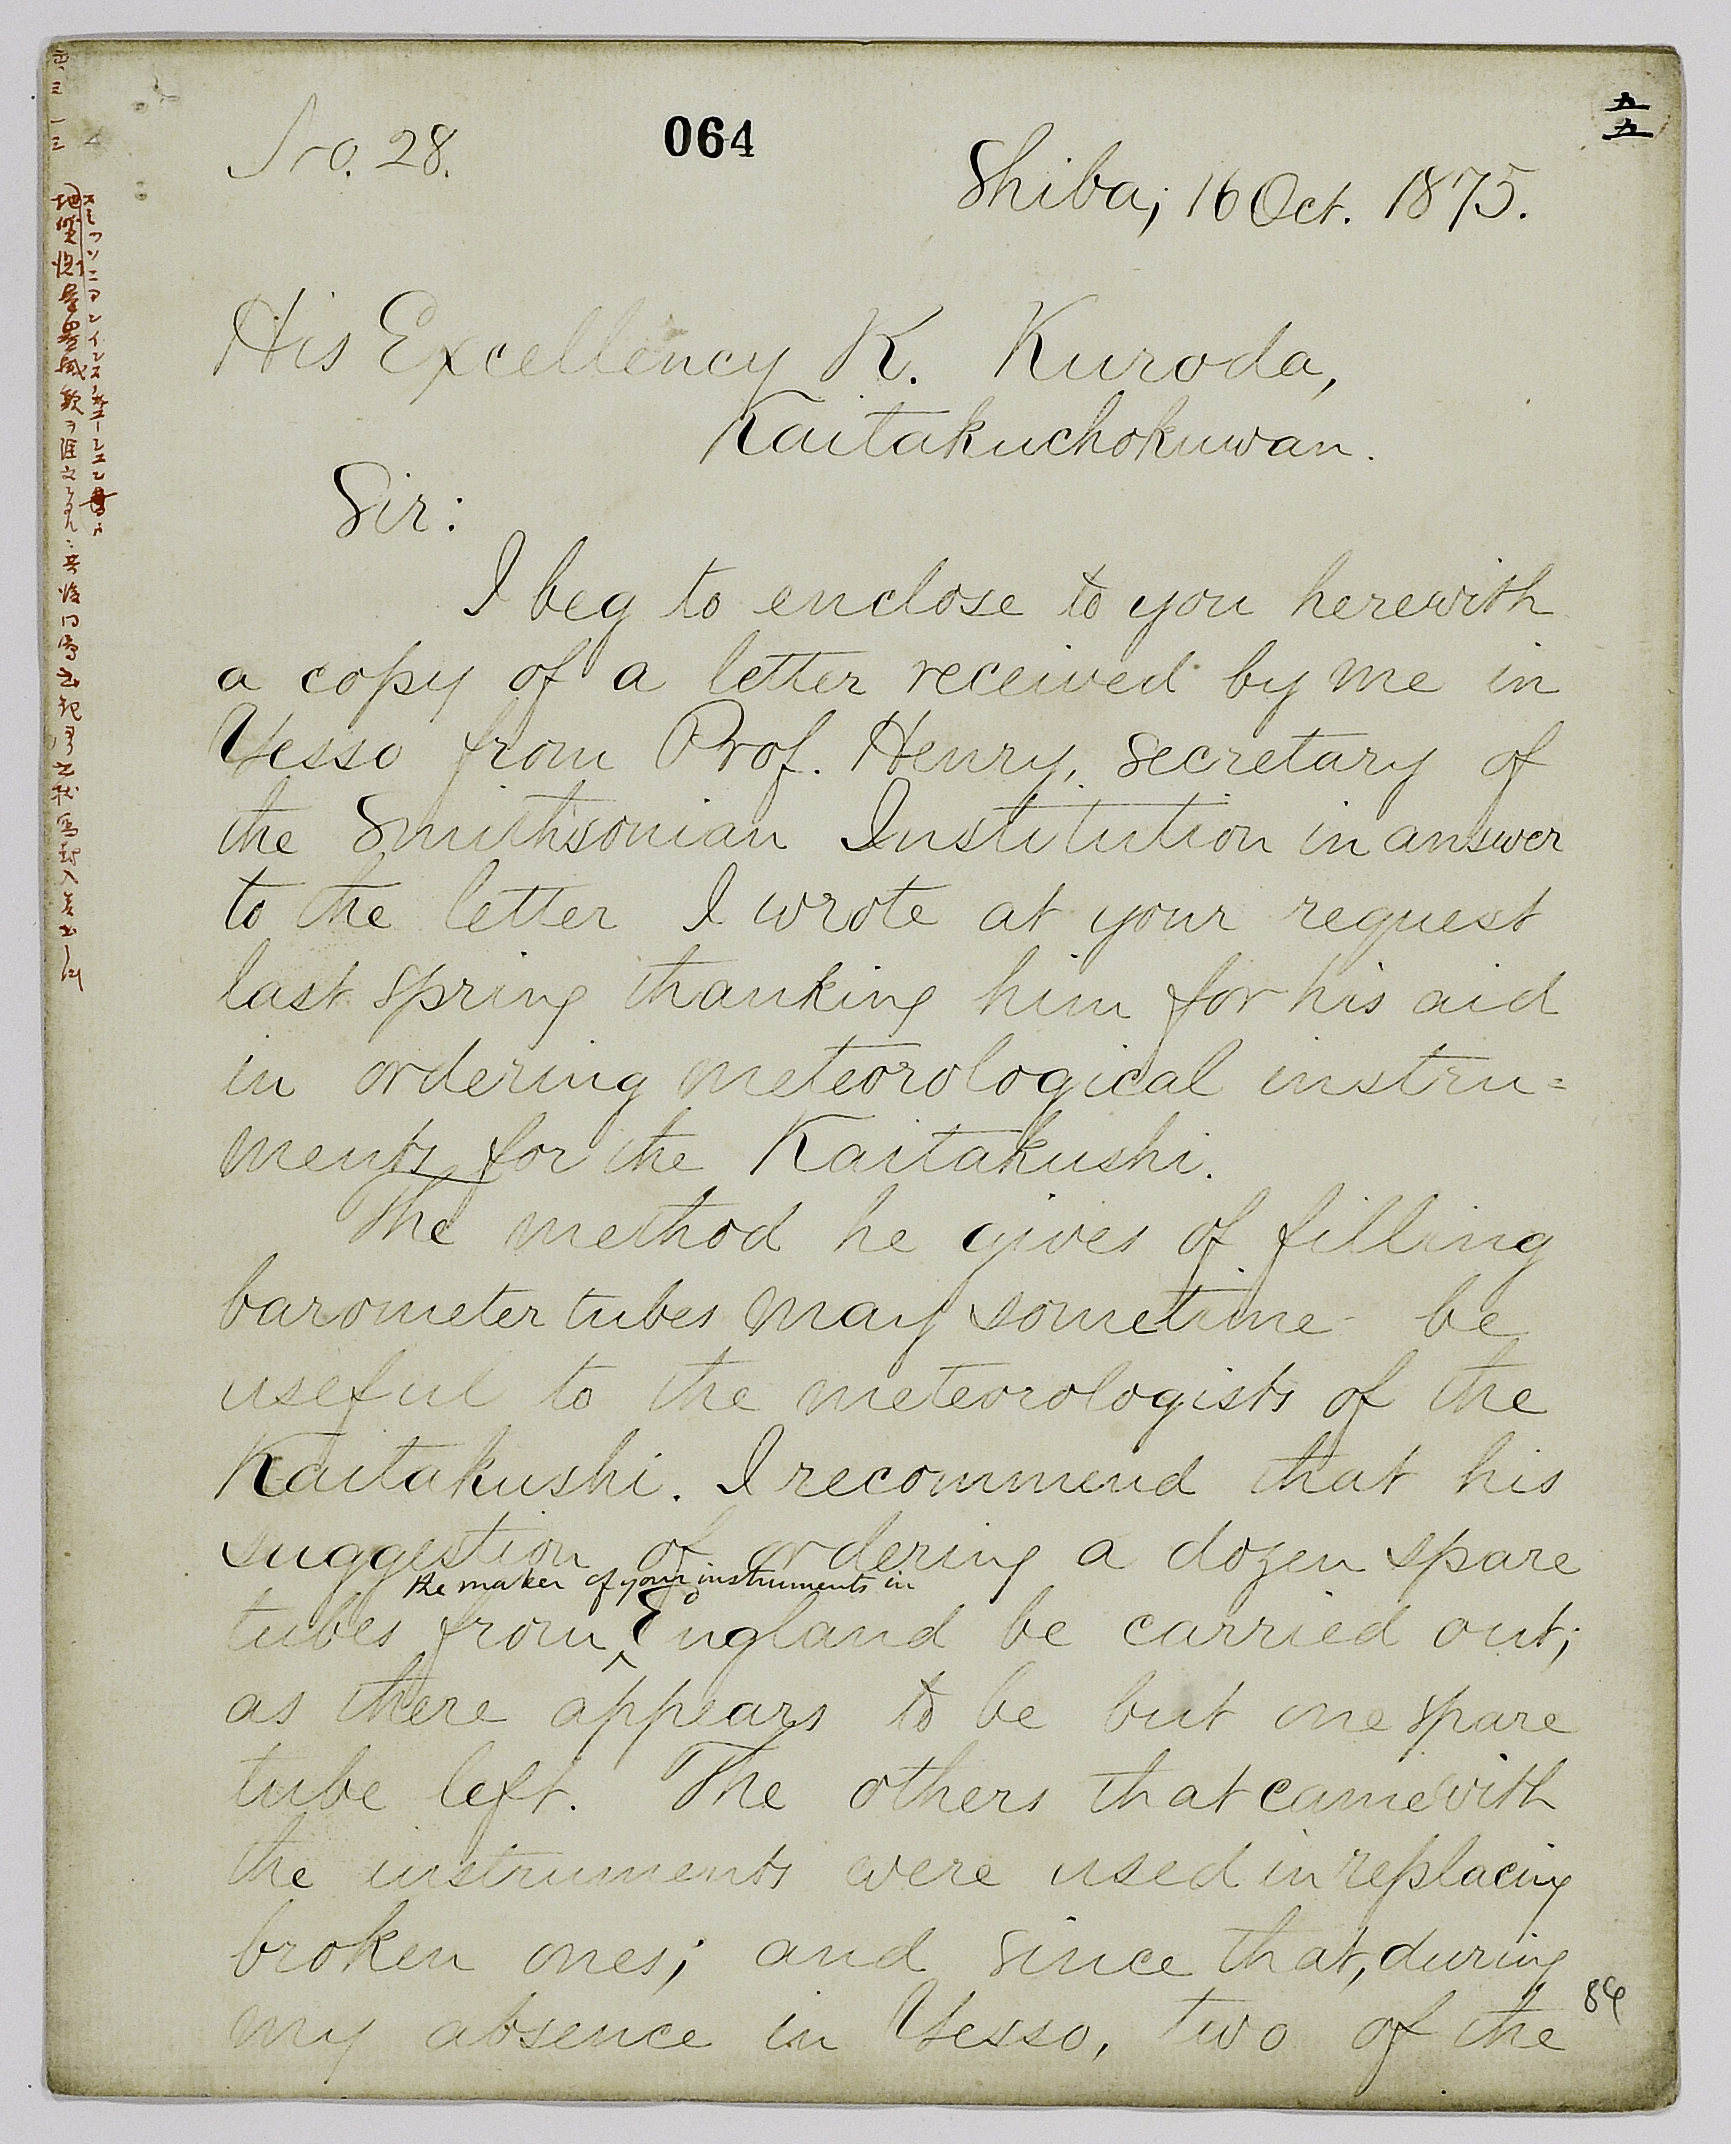 No. 28.
064
五五
Shiba, 16 Oct. 1875.
His Excellency K. Kuroda,
Kaitakuchokuwan.
Sir:
I beg to enclose to you herewith
a copy of a letter received by me in
Yesso from Prof. Henry, secretary of
the Smithsonian Institution in answer
to the letter I wrote at your request
last spring thanking him for his aid
in ordering meteorological instru=
ments for the Kaitakushi.
The method he gives of filling
barometer tubes may sometime be
useful to the meteorologists of the
Kaitakushi. I recommend that his
suggestion of ordering a dozen spare
the maker of your instruments in
tubes from ^ England be carried out;
as there appears to be but one spare
tube left. The others that came with
the instruments were used in replacing
broken ones; and since that, during
my absence in Yesso, two of the